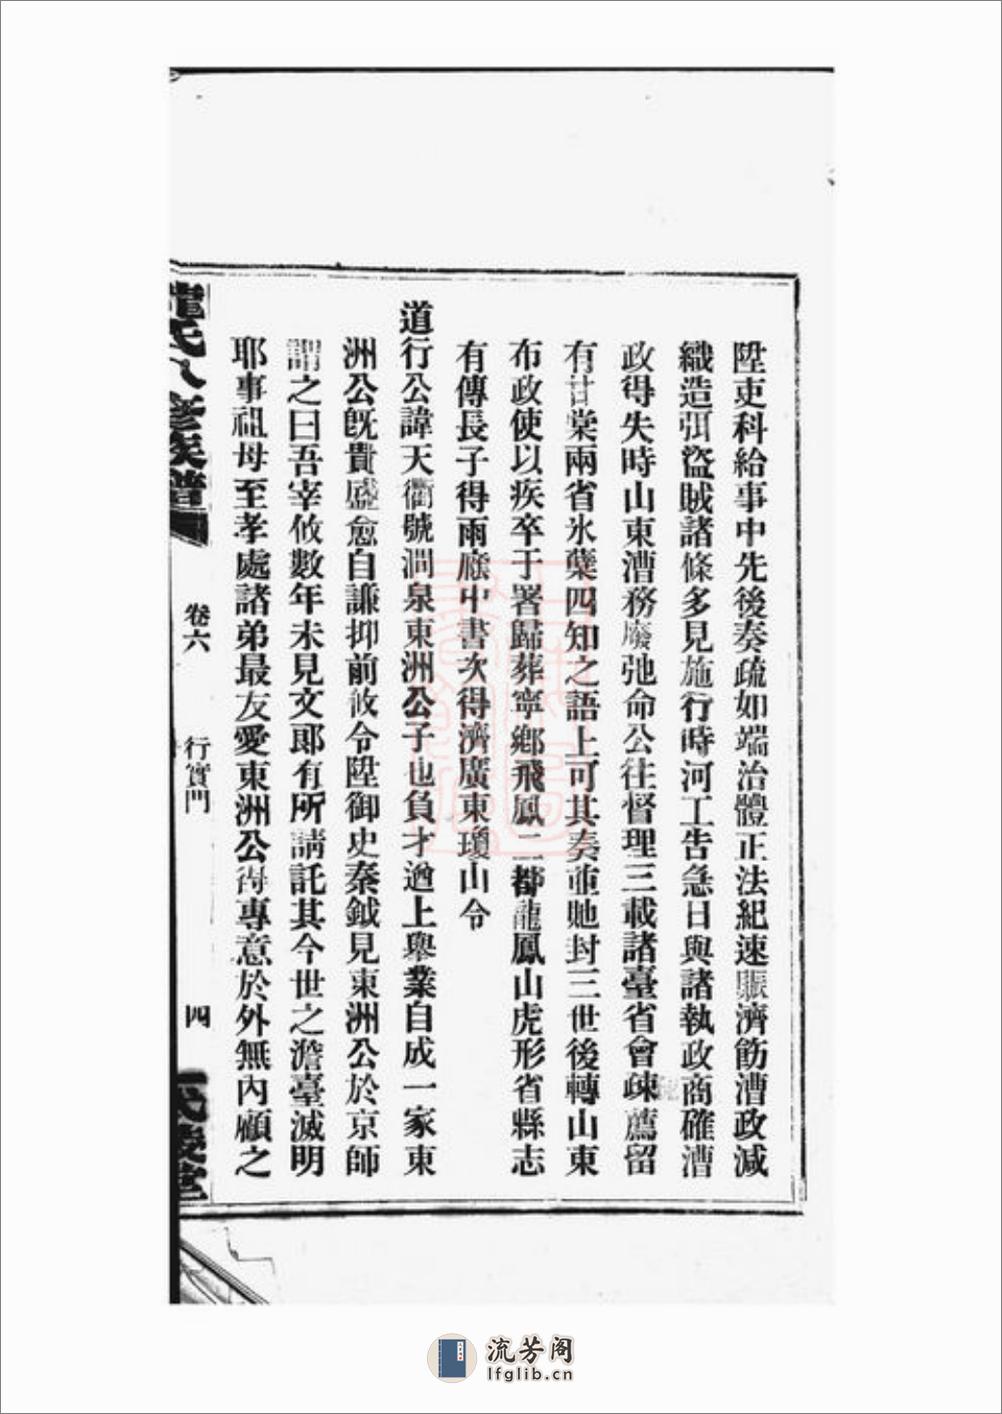 陞吏科給事中先後奏疏如端治體正法紀速賑濟飭漕政減
織造弭盜賊諸條多見施行時河工告急日與諸執政商確漕
政得失時山東漕務廢弛命公往督理三載諸臺省會疎薦留
有甘棠兩省氷蘗四知之語上可其奏並貤封三世後轉山東
布政使以疾卒于署歸葬寧鄉飛鳳二都龍鳳山虎形省縣志
有傳長子得雨廕中書次得濟廣東瓊山令
道行公諱天衢號澗泉東洲公子也負才遒上舉業自成一家東
洲公旣貴盛愈自謙抑前攸令陞御史秦鉞見東洲公於京師
謂之曰吾宰攸數年未見文郎有所請託其今世之澹臺滅明
耶事祖母至孝處諸弟最友愛東洲公得專意於外無內顧之
氏八修族譜
卷六
行實門
四
堂
流芳阁
lfglib.cn